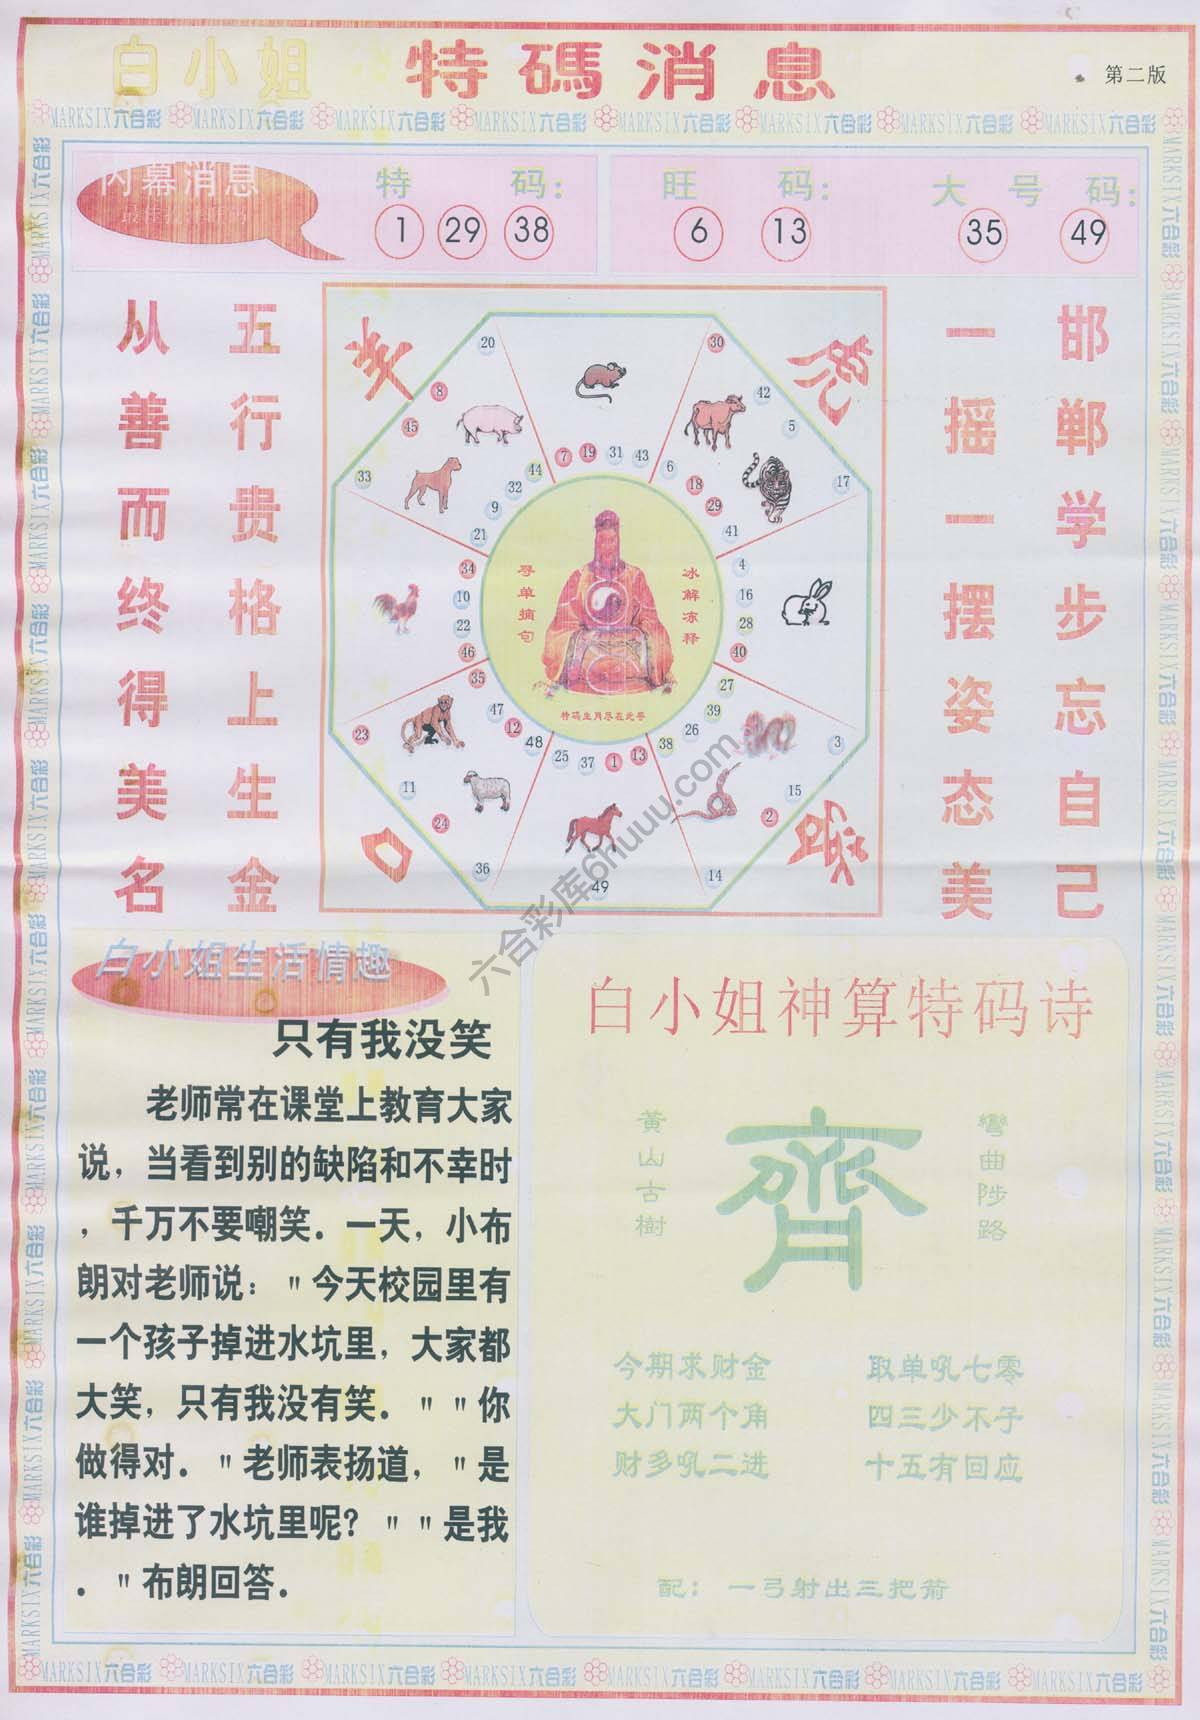 白小姐 特碼消息
第二版
MARKSIX六合彩 MARKSIX六合彩 MARKSIX六合彩 MARKSIX六合彩 MARKSIX六合彩 MARKSIX六合彩 MARKSIX六合彩 MARKSIX六合彩
内幕消息
特 码: 旺 码: 大 号 码:
1 29 38 6 13 35 49
从善而终得美名
五行贵格上生金
一摇一摆姿态美
邯郸学步忘自己
20 30
8 42
45 5
33 44 7 19 31 43 6 17
32 18
9 29
21 41
34 4
10 16
22 28
46 40
35 27
47 39
23 12 26 3
48 25 37 1 13 38
11 15
24 2
36 49 14
寻单摘句
冰解冻释
特码生肖尽在此寻
六合彩库6huuu.com
白小姐生活情趣
只有我没笑
老师常在课堂上教育大家
说，当看到别的缺陷和不幸时
，千万不要嘲笑．一天，小布
朗对老师说："今天校园里有
一个孩子掉进水坑里，大家都
大笑，只有我没有笑．""你
做得对．"老师表扬道，"是
谁掉进了水坑里呢？""是我
．"布朗回答．
白小姐神算特码诗
黃山古樹
齊
彎曲陟路
今期求财金 取单吼七零
大门两个角 四三少不子
财多吼二进 十五有回应
配：一弓射出三把箭
MARKSIX六合彩 MARKSIX六合彩 MARKSIX六合彩 MARKSIX六合彩 MARKSIX六合彩 MARKSIX六合彩 MARKSIX六合彩 MARKSIX六合彩